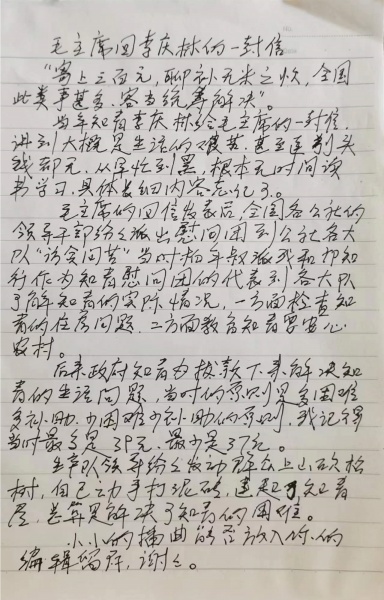 毛主席回李庆林的一封信
"寄上三百元,聊补无米之炊,全国
此类事甚多,容当统筹解决"。
当年知青李庆林给毛主席的一封信,
讲到大概是生活的艰苦,甚至连剃头
钱都无,从早忙到黑,根本无时间读
书学习,具体详细内容忘记了。
毛主席的回信发表后,全国各公社的
领导干部纷纷派出慰问团到公社各大
队"访贫问苦"当时杨年叔派我和
行作为知青慰问团的代表到各大队
了解知青的实际情况,一方面检查知
青的住房问题,二方面教育知青要安心
农村。
后来政府知青办拨款下来解决知
青的生活问题,当时的原则是多困难
多补助,少困难少补助的原则,我记得
当时最多是39元,最少是37元。
生产队领导纷纷发动群众上山砍松
树,自己动手打泥砖,建起了知青
屋,总算是解决了知青的困难。
小小的插曲能否放入你的
编辑留存,谢谢。